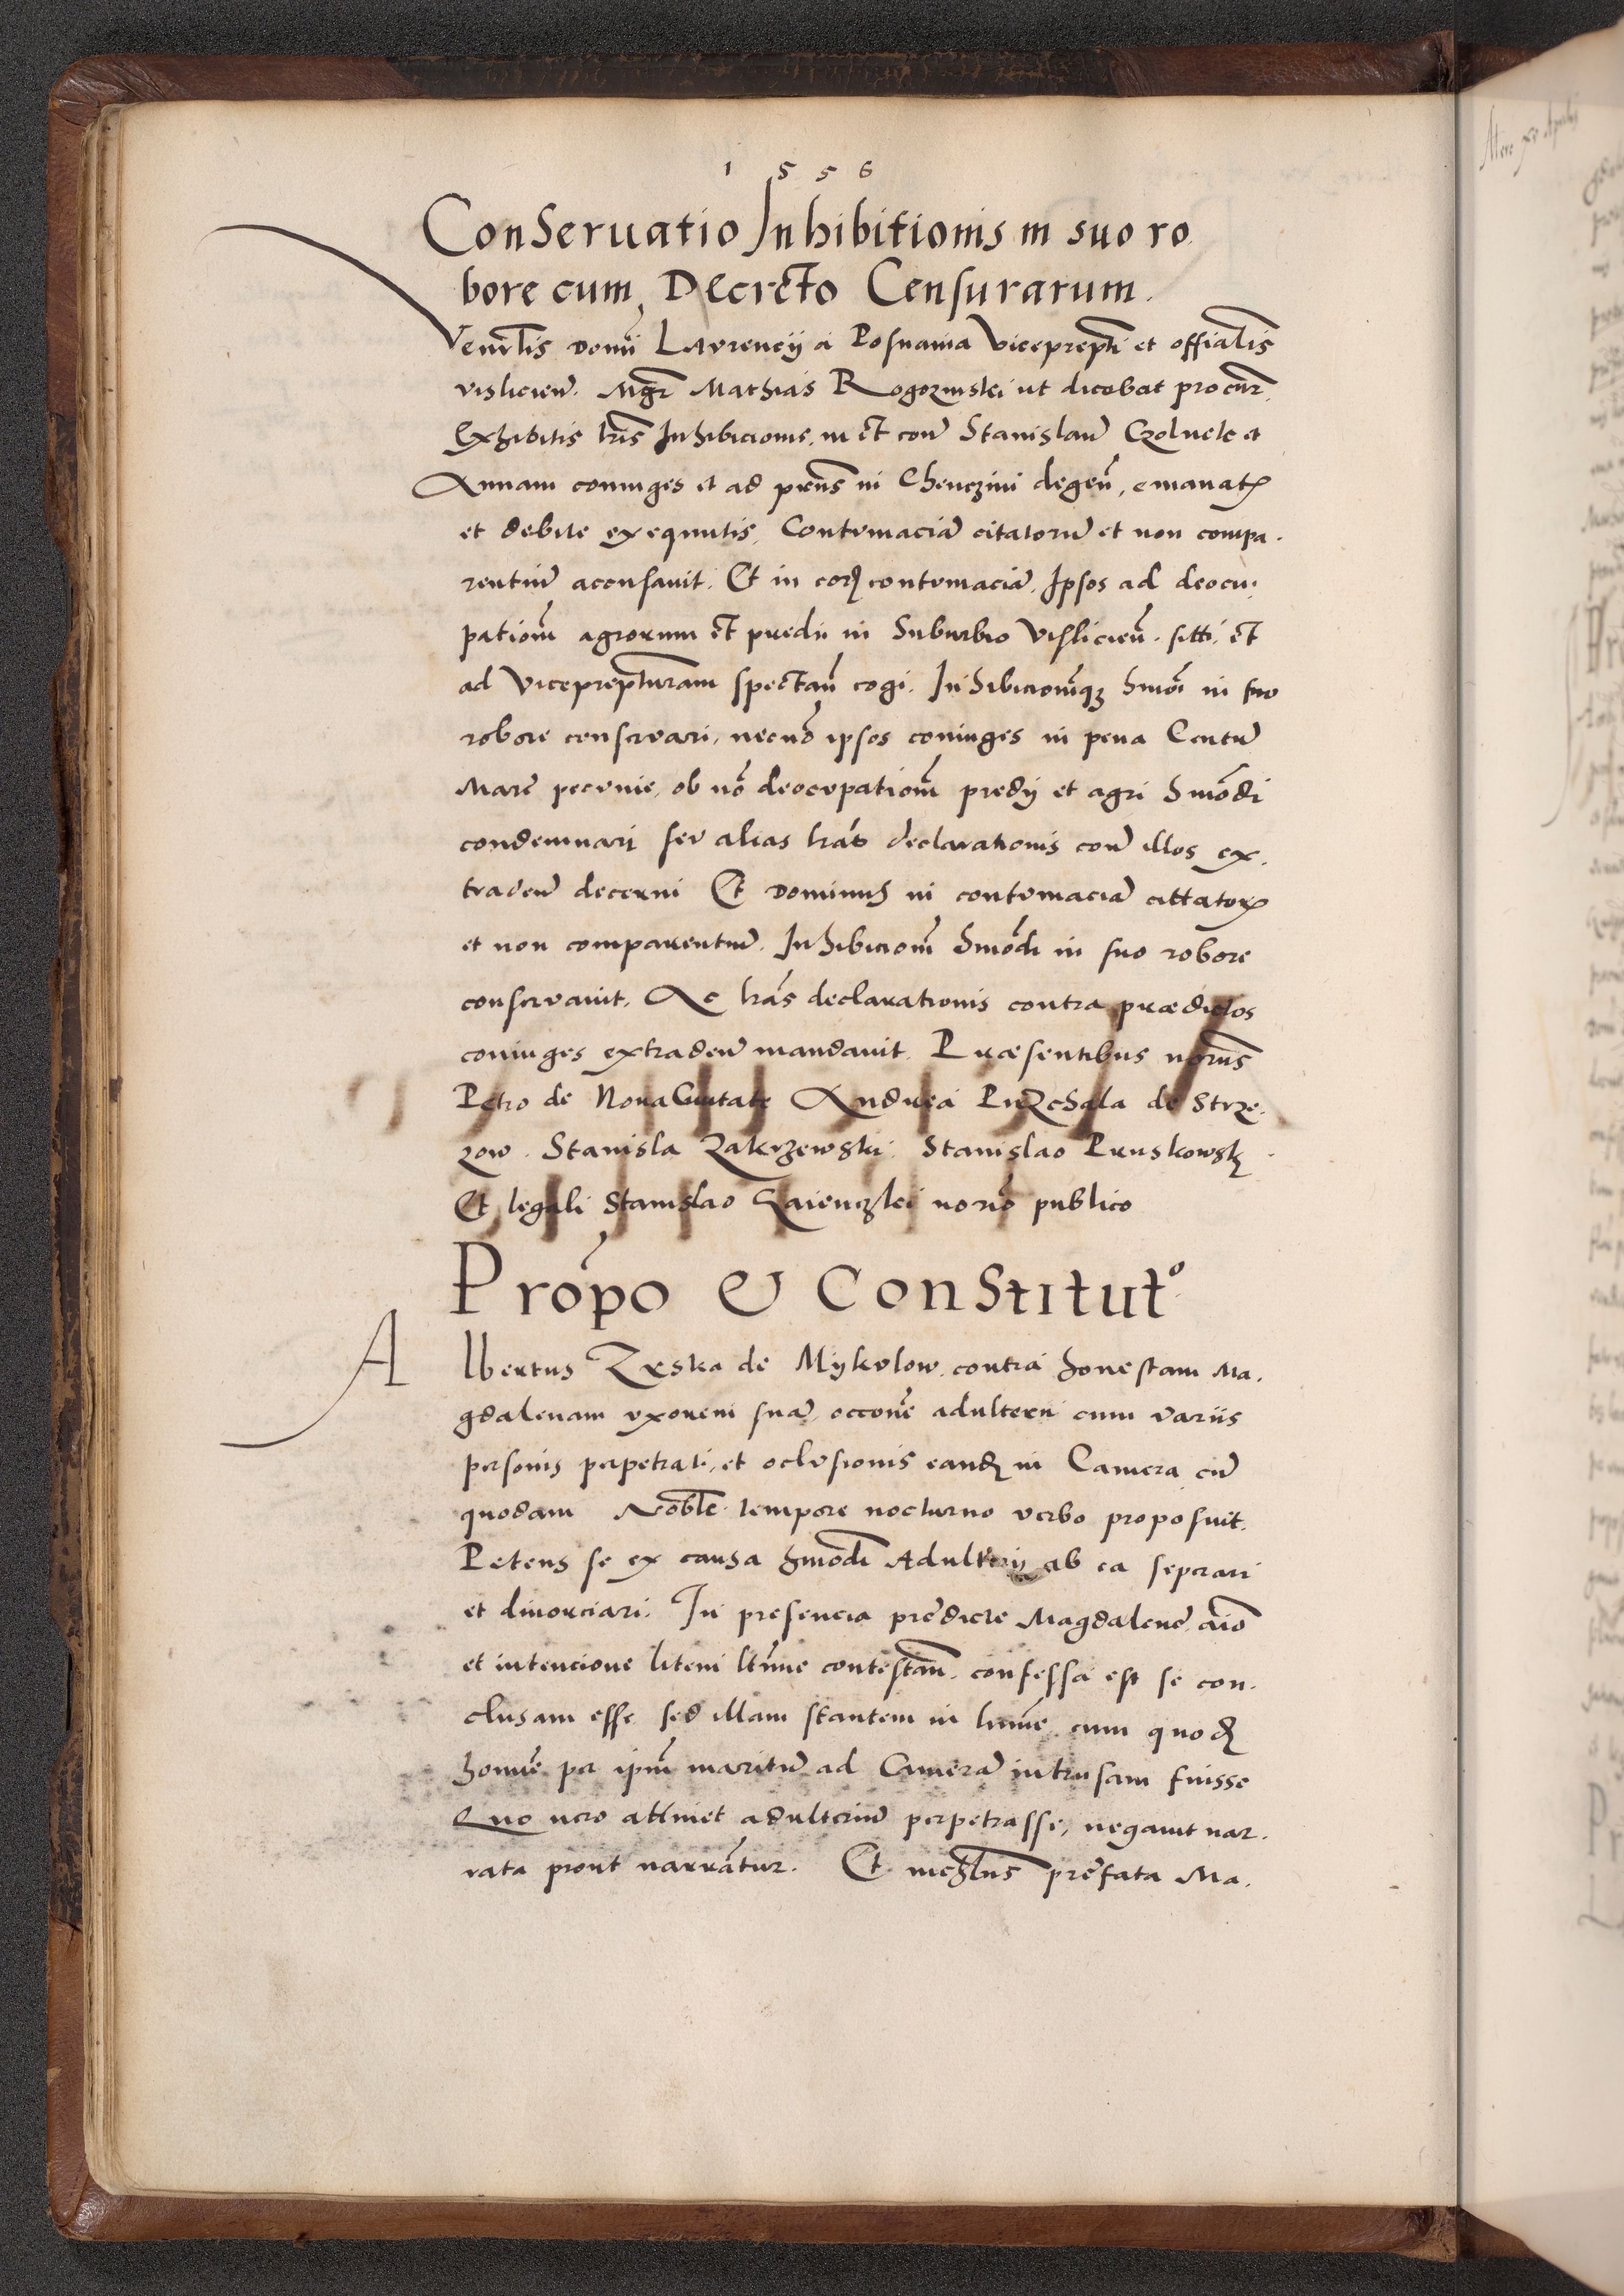 1 5 5 6
ConSeruatio Inhibitionis in suo ro
bore cum Decreto Censurarum.
Venrlis domni Laurencij a Posnania Viceprepti et offialis
vislicien. Mgr Mathias Rogozinski ut dicebat procur.
Exhibitis lris Inhibicionis in et con Stanislau et
Annam coniuges et ad prens in Chenczini degen, emanat
et debite exequutis, Contumacia citatoru et non compa.
rentiu acousauit. Et in cor contumacia, Ipsos ad deocu.
pationem agrorum et predii in Suburbio Vislicien. sitti, et
ad Vicepreptturam spectan cogi. Inhibicionemq hmoi in suo
robore conseruari, necno ipsos coniuges in pena Centu
Marc pecunie, ob no deocupationem predij et agri hmodi
condemnari seu alias lras declarationis con illos ex.
traden decerni Et dominus in contumacia cittator
et non comparentiu. Inhibicionem hmodi in suo robore
conseruauit, Ac lras declarationis contra prædictos
coniuges extraden mandauit. Præsentibus
Petro de NouaCiuitate Andrea de Strze.
zow. Stanisla Zakrzewski. Stanislao Pruskowsk
Et legali Stanislao norio publico
Propo & ConStitut°
Albertus de contra honestam Ma.
gdalenam vxorem sua, occone adulterii cum variis
personis perpetrati, et oclusionis eand in Camera cu
quodam Noble tempore nocturno verbo proposuit.
Petens se ex causa hmodi Adulterij ab ea seperari
et diuorciari. In presencia predicte Magdalene aio
et intencione litem ltime contestan. confessa est se con.
clusam esse sed illam stantem in limie cum quod
homie per ipm maritu ad Camera intrusam fuisse
Quo uero attinet adulteriu perpetrasse, negauit nar.
rata prout narrantur. Et prefata Ma.